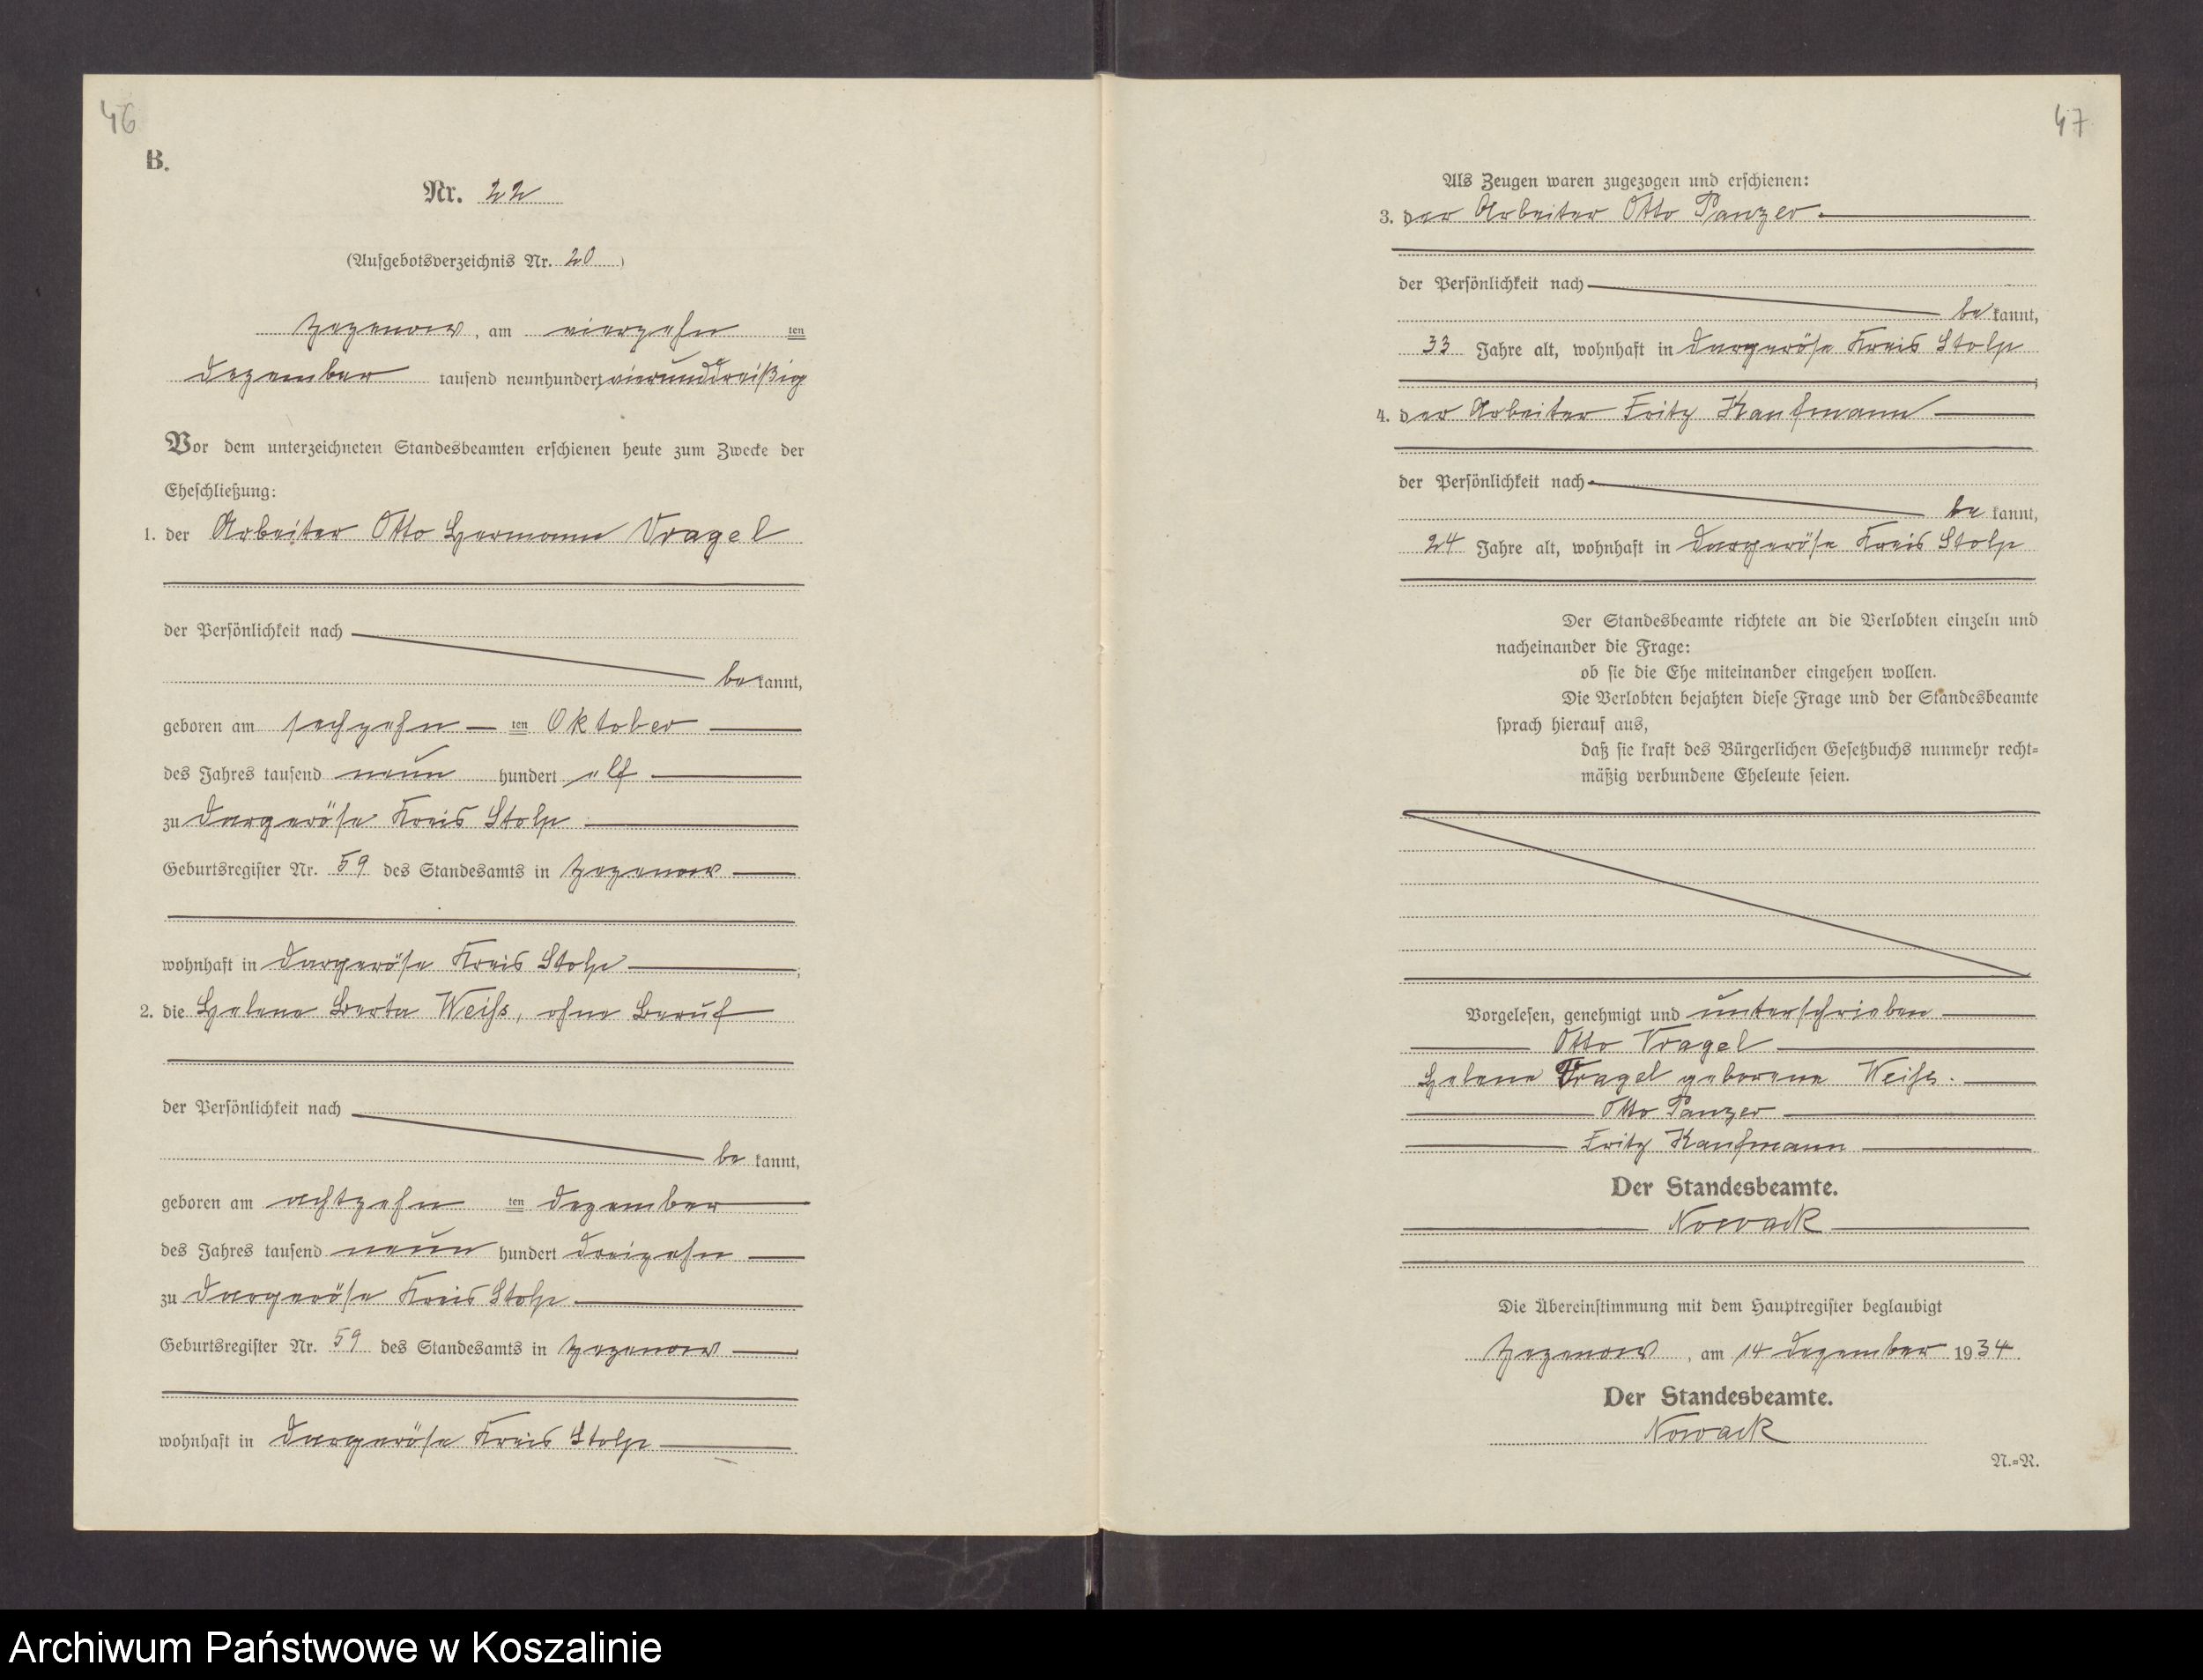 46
B.
Nr. 22
(Aufgebotsverzeichnis Nr. 20)
Zezenow, am vierzehn ten
Dezember tausend neunhundert vierunddreißig
Vor dem unterzeichneten Standesbeamten erschienen heute zum Zwecke der
Eheschließung:
1. der Arbeiter Otto Hermann Vragel
der Persönlichkeit nach
be kannt,
geboren am sechzehn ten Oktober
des Jahres tausend neun hundert elf
zu Dargeröse Kreis Stolp
Geburtsregister Nr. 59 des Standesamts in Zezenow
wohnhaft in Dargeröse Kreis Stolp;
2. die Helene Berta Weiß, ohne Beruf
der Persönlichkeit nach
be kannt,
geboren am achtzehn ten Dezember
des Jahres tausend neun hundert dreizehn
zu Dargeröse Kreis Stolp
Geburtsregister Nr. 59 des Standesamts in Zezenow
wohnhaft in Dargeröse Kreis Stolp
47
Als Zeugen waren zugezogen und erschienen:
3. der Arbeiter Otto Panzer
der Persönlichkeit nach
be kannt,
33 Jahre alt, wohnhaft in Dargeröse Kreis Stolp
;
4. der Arbeiter Fritz Kaufmann
der Persönlichkeit nach
be kannt,
24 Jahre alt, wohnhaft in Dargeröse Kreis Stolp
Der Standesbeamte richtete an die Verlobten einzeln und
nacheinander die Frage:
ob sie die Ehe miteinander eingehen wollen.
Die Verlobten bejahten diese Frage und der Standesbeamte
sprach hierauf aus,
daß sie kraft des Bürgerlichen Gesetzbuchs nunmehr recht-
mäßig verbundene Eheleute seien.
Vorgelesen, genehmigt und unterschrieben
Otto Vragel
Helene Vragel geborene Weiß.
Otto Panzer
Fritz Kaufmann
Der Standesbeamte.
Nowack
Die Übereinstimmung mit dem Hauptregister beglaubigt
Zezenow, am 14 Dezember 1934
Der Standesbeamte.
Nowack
N.-R.
Archiwum Państwowe w Koszalinie